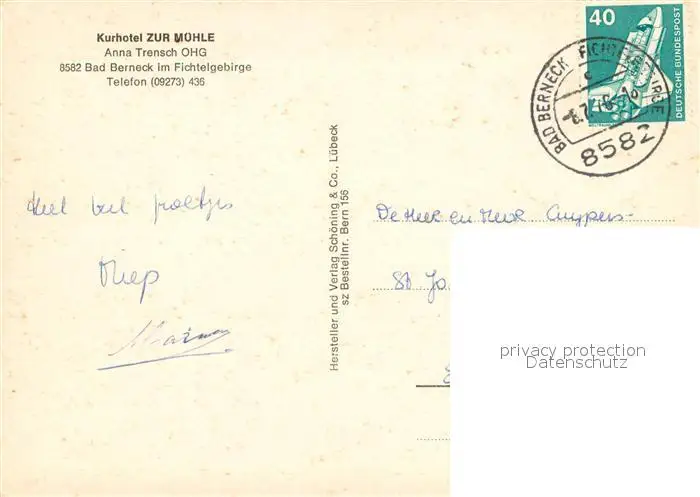 Kurhotel ZUR MÜHLE
Anna Trensch OHG
8582 Bad Berneck im Fichtelgebirge
Telefon (09273) 436
40
DEUTSCHE BUNDESPOST
BAD BERNECK
8582
Hersteller und Verlag Schöning & Co., Lübeck
sz Bestellnr. Bern 156
veel
Miep
De Heer en Mevr Cuypers-
St Jo
privacy protection
Datenschutz